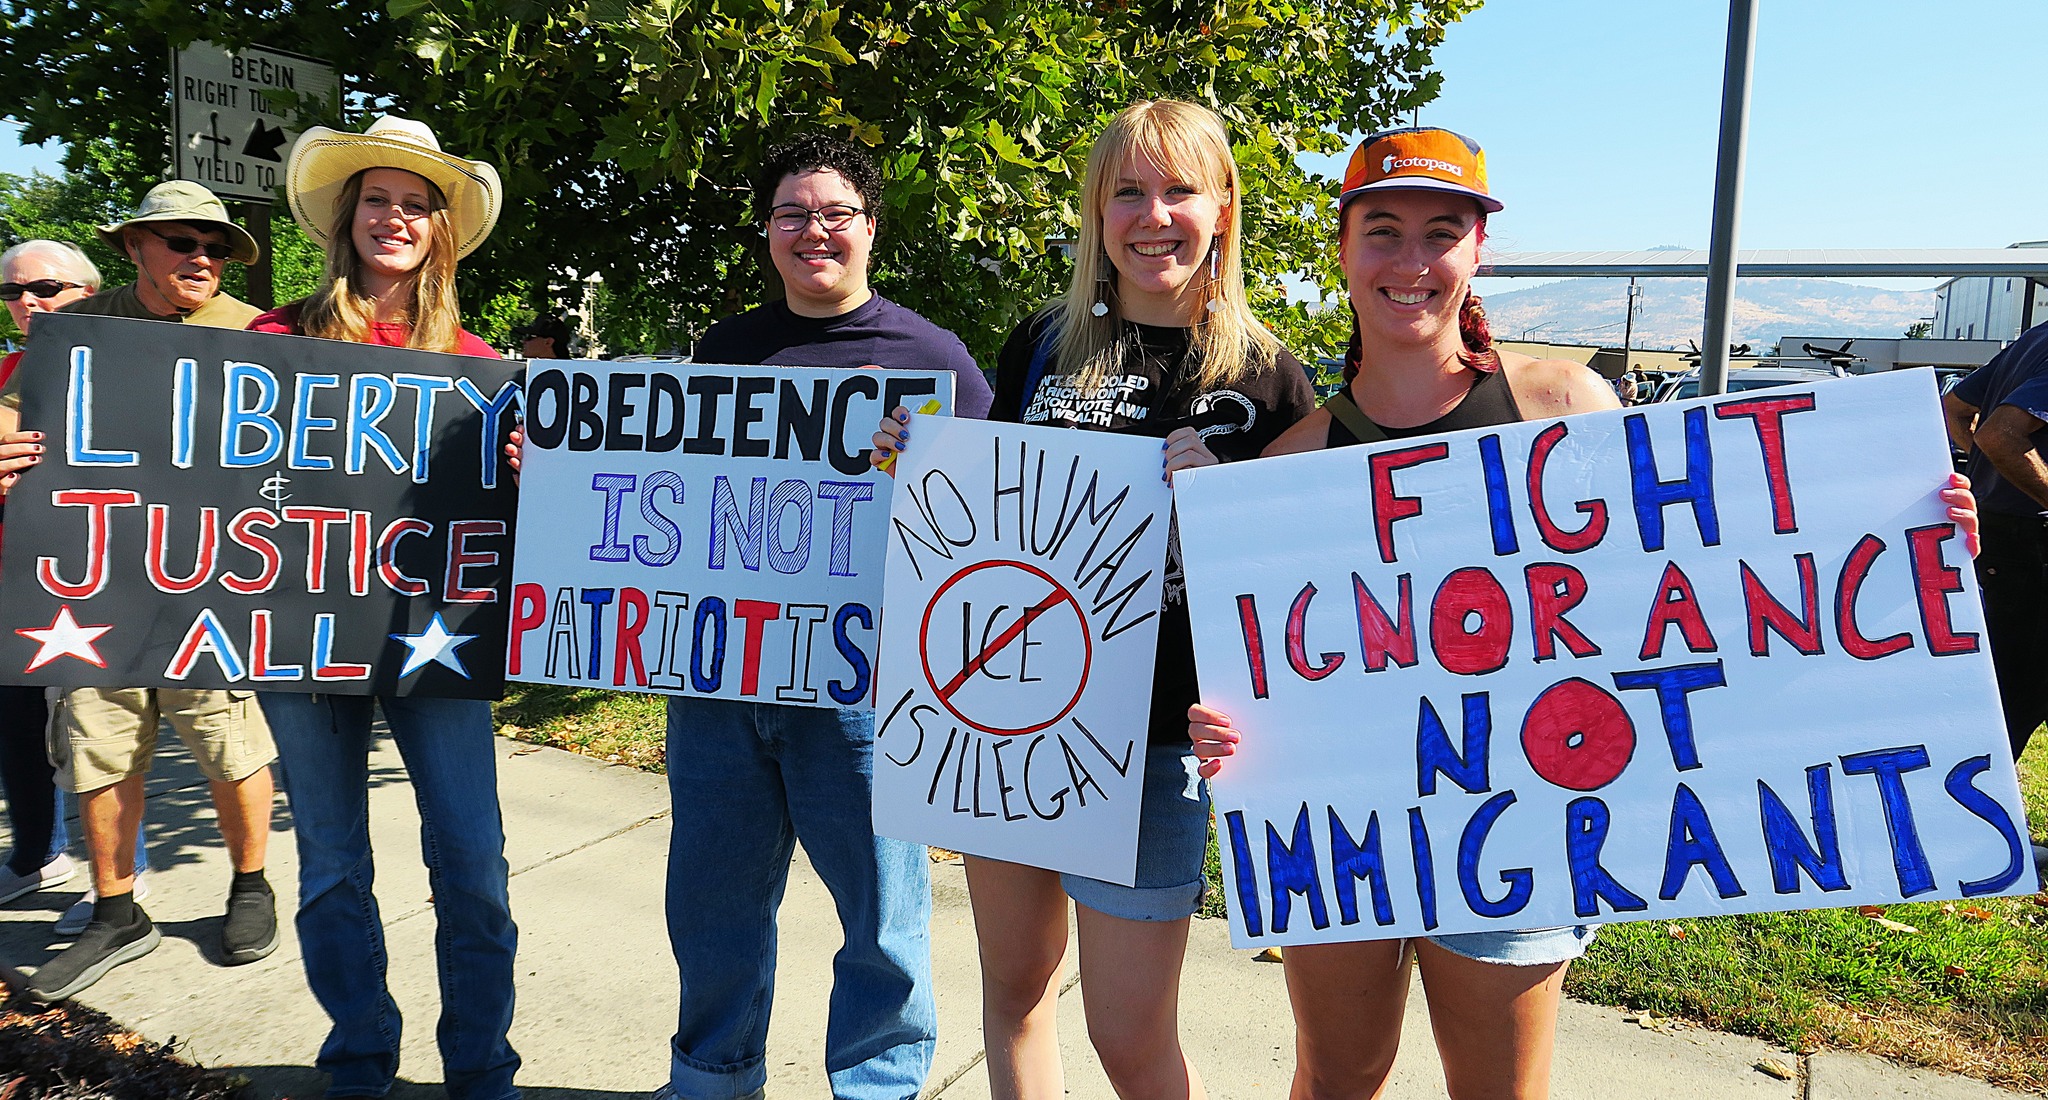 BEGIN
RIGHT TU
YIELD TO
cotopaxi
LIBERTY
&
JUSTICE
ALL
OBEDIENCE
IS NOT
PATRIOTIS
NO HUMAN
ICE
IS ILLEGAL
FOOLED
RICH WON'T
LET YOU VOTE AWA
THEIR WEALTH
FIGHT
IGNORANCE
NOT
IMMIGRANTS